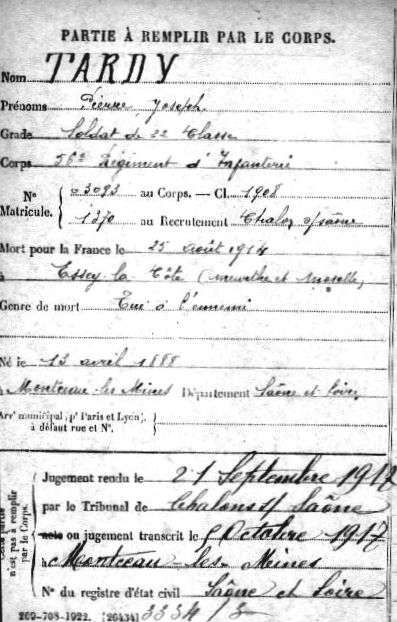 PARTIE À REMPLIR PAR LE CORPS.
Nom TARDY
Prénoms Pierre Joseph
Grade Soldat de 2e Classe
Corps 56e Régiment d'Infanterie
No Matricule. 3093 au Corps. — Cl. 1908
1370 au Recrutement Chalon s/Saône
Mort pour la France le 25 août 1914
à Essey la Côte (Meurthe et Moselle)
Genre de mort Tué à l'ennemi
Né le 13 avril 1888
à Montceau-les-Mines Département Saône et Loire
Arrt municipal (pr Paris et Lyon), à défaut rue et No.
n'est pas à remplir par le Corps.
Jugement rendu le 21 Septembre 1917
par le Tribunal de Chalon s/ Saône
acte ou jugement transcrit le 5 Octobre 1917
à Montceau-les-Mines
No du registre d'état civil Saône et Loire
269-708-1922. [26434] 3334/3